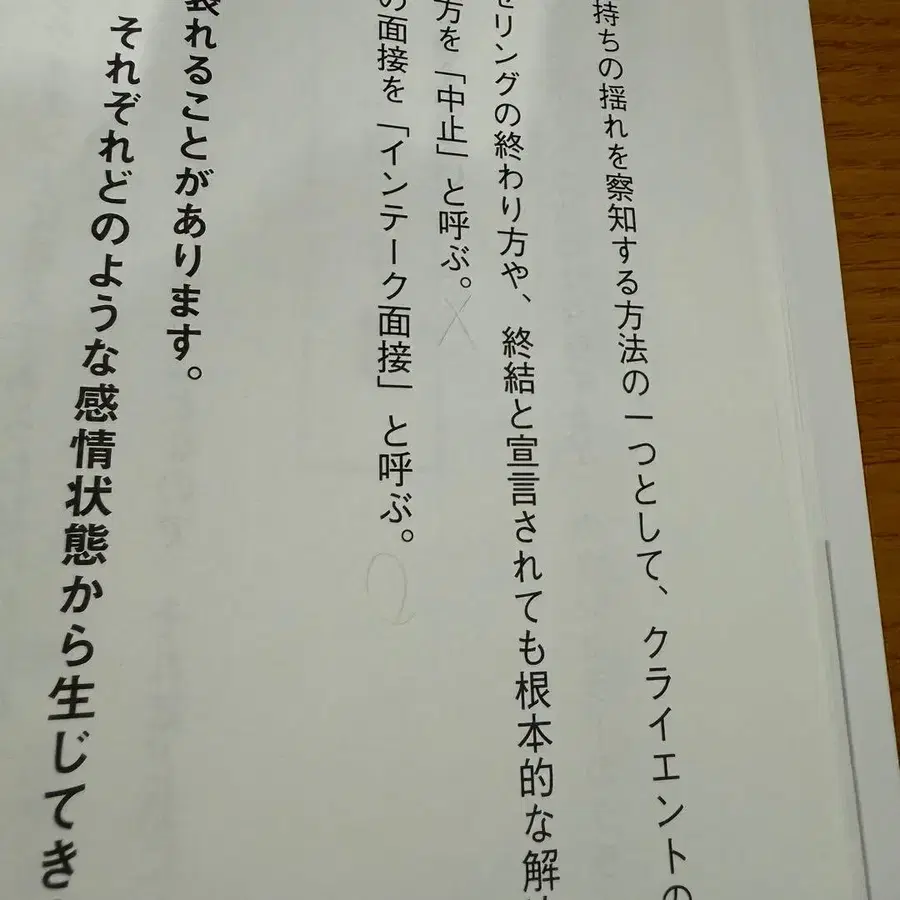 持ちの揺れを察知する方法の一つとして、クライエントの
セリングの終わり方や、終結と宣言されても根本的な解
方を「中止」と呼ぶ。×
の面接を「インテーク面接」と呼ぶ。○
表れることがあります。
それぞれどのような感情状態から生じてき